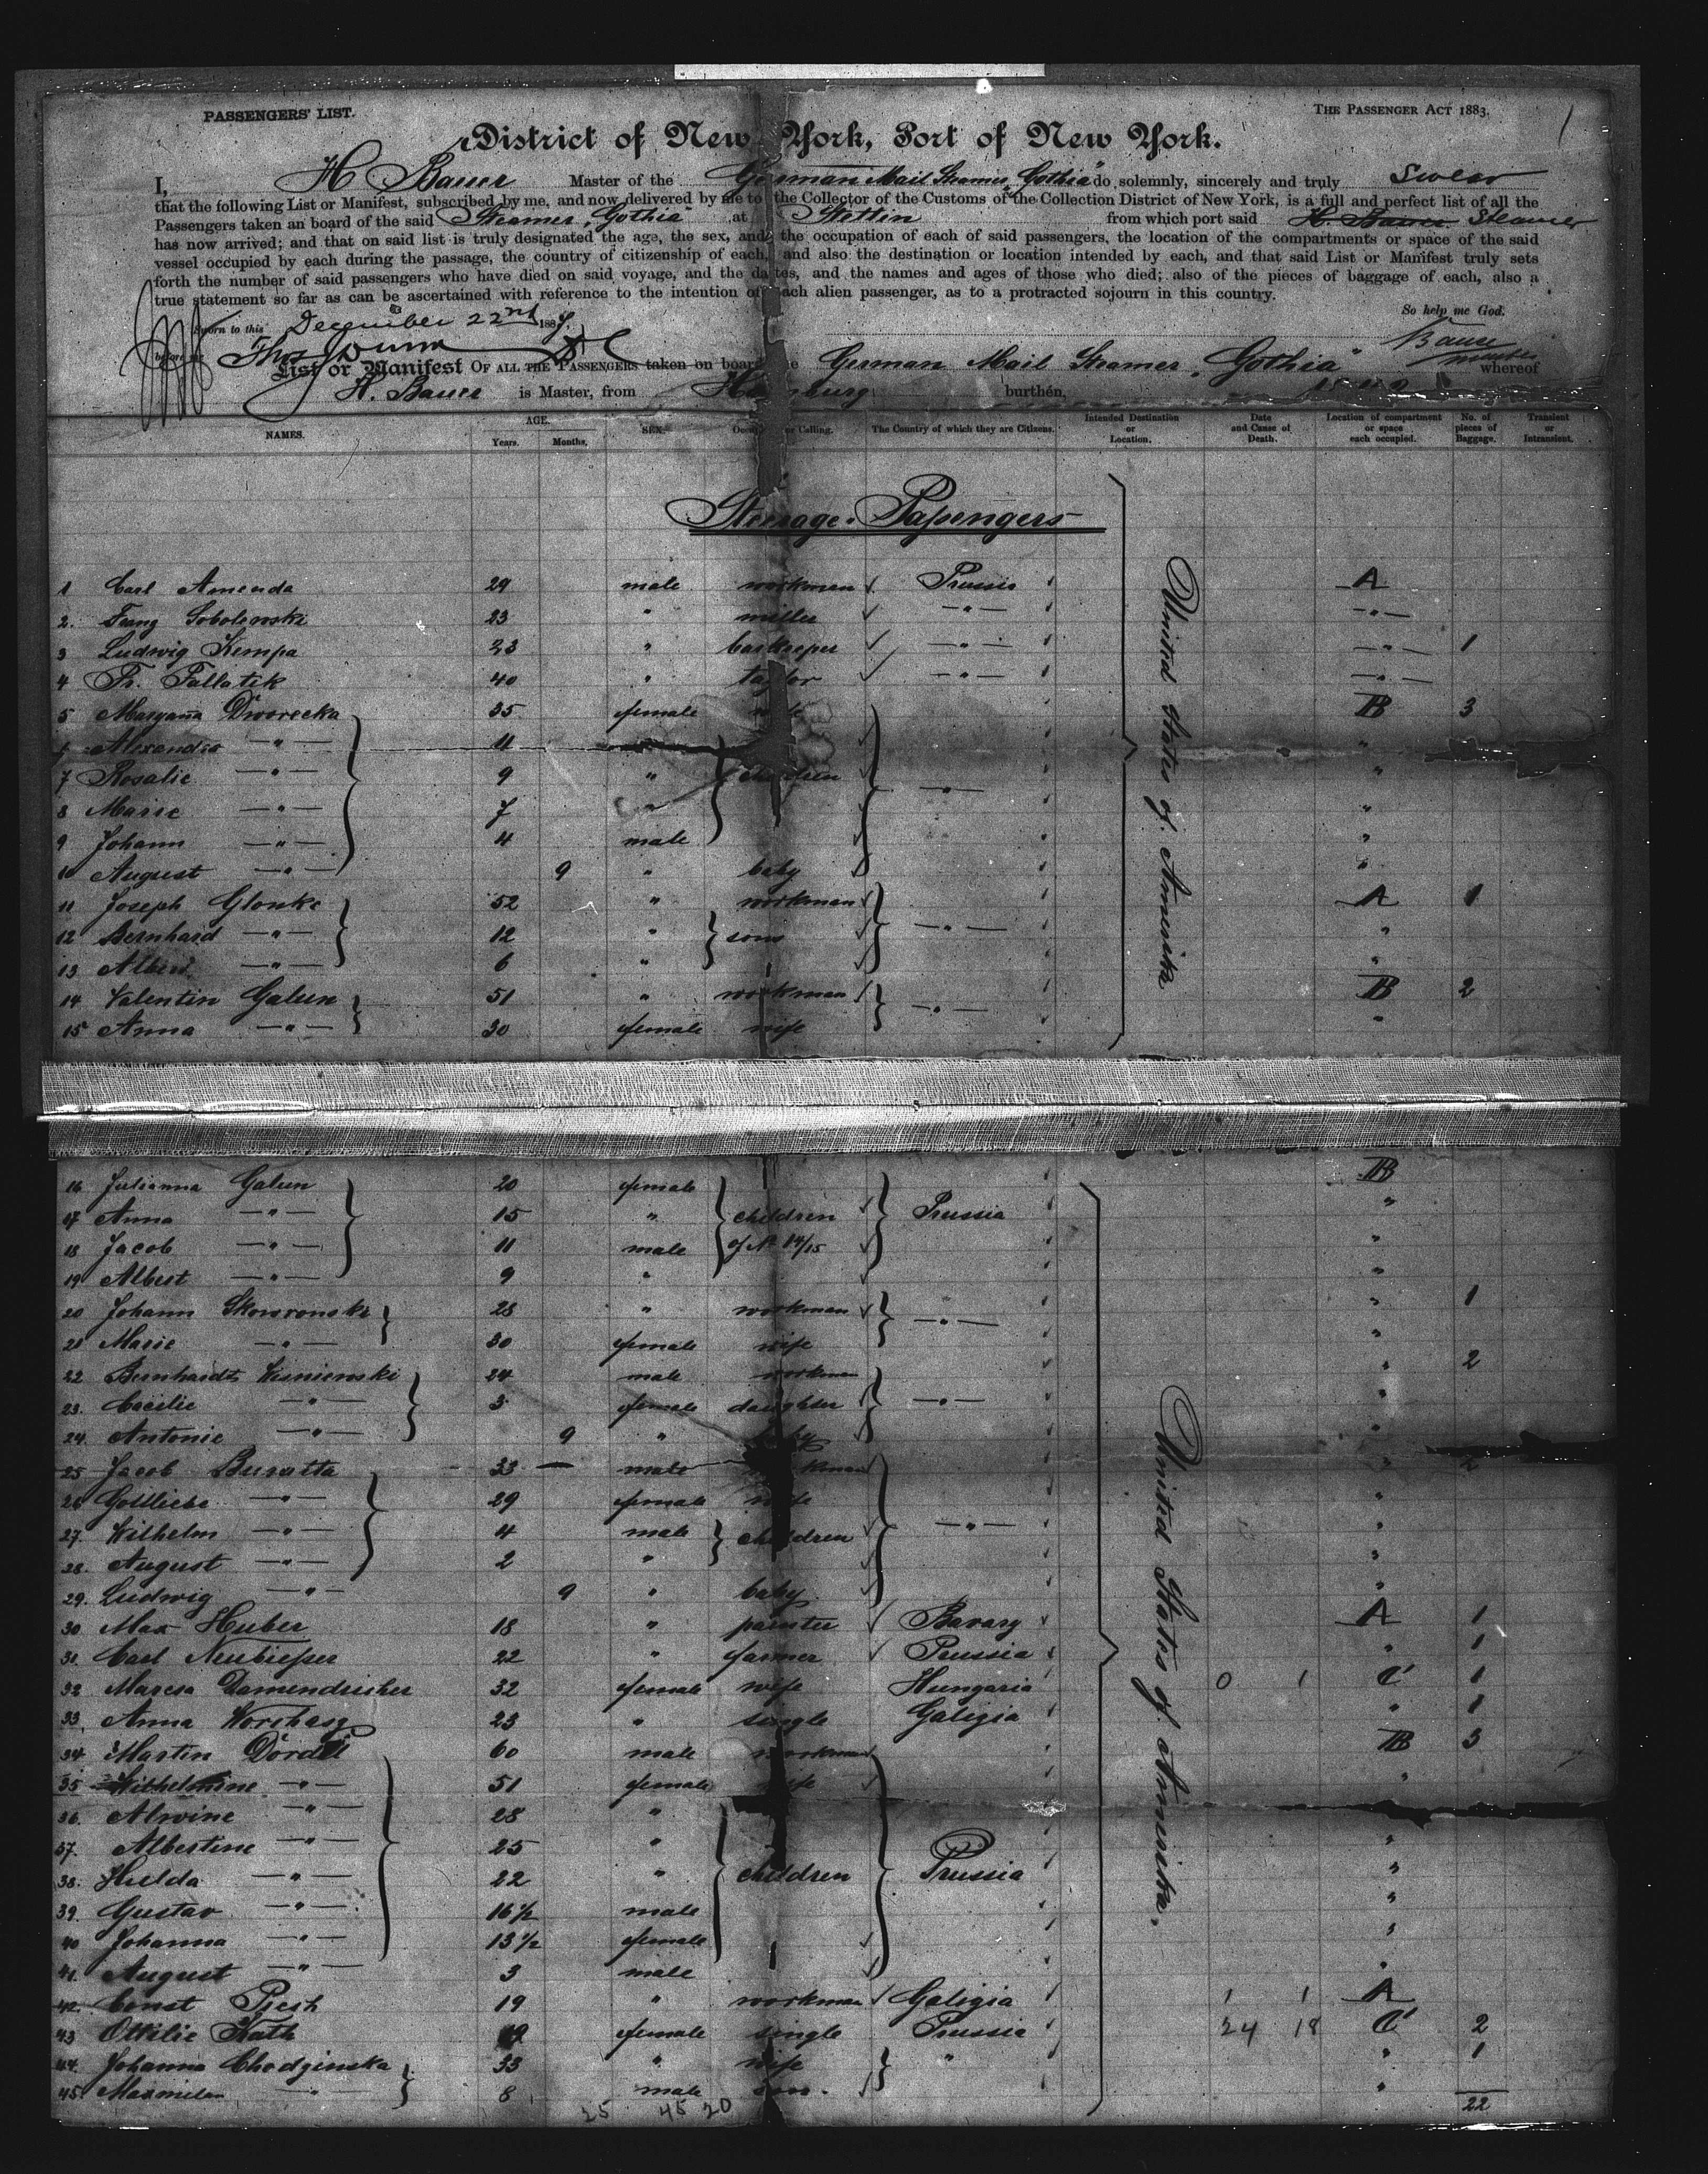 PASSENGERS' LIST.
THE PASSENGER ACT 1883.
District of New York, Port of New York.
I, H Bauer Master of the German Mail Steamer „Gothia" do solemnly, sincerely and truly swear
that the following List or Manifest, subscribed by me, and now delivered by me to the Collector of the Customs of the Collection District of New York, is a full and perfect list of all the
Passengers taken on board of the said Steamer „Gothia" at Stettin from which port said H. Bauer Steamer
has now arrived; and that on said list is truly designated the age, the sex, and the occupation of each of said passengers, the location of the compartments or space of the said
vessel occupied by each during the passage, the country of citizenship of each, and also the destination or location intended by each, and that said List or Manifest truly sets
forth the number of said passengers who have died on said voyage, and the dates, and the names and ages of those who died; also of the pieces of baggage of each, also a
true statement so far as can be ascertained with reference to the intention of each alien passenger, as to a protracted sojourn in this country.
So help me God.
Sworn to this December 22nd 1887,
before me Thos Dunn
List or Manifest OF ALL THE PASSENGERS taken on board the German Mail Steamer „Gothia" whereof
H. Bauer is Master, from Hamburg burthen,
NAMES. AGE. Years. Months. SEX. Occupation or Calling. The Country of which they are Citizens. Intended Destination or Location. Date and Cause of Death. Location of compartment or space each occupied. No. of pieces of Baggage. Transient or Intransient.
Steerage-Passengers
United States of Amerika
1 Carl Amenda 29 male workman Prussia A
2. Franz Sobolewski 23 " miller —"— —"—
3 Ludwig Kempa 23 " barkeeper —"— —"— 1
4 Fr. Fallatik 40 " taylor —"— —"—
5 Maryana Dworecka 35 female B 3
6 Alexandra —"— 11 "
7 Rosalie —"— 9 " children —"— "
8 Marie —"— 7 " "
9. Johann —"— 4 male "
10 August —"— 9 " baby "
11 Joseph Glonke 52 " workman A 1
12 Bernhard —"— 12 " sons —"— "
13 Albert —"— 6 " "
14 Valentin Galun 51 " workman —"— B 2
15 Anna —"— 30 female wife "
16 Julianna Galun 20 female B
17 Anna —"— 15 " children Prussia "
18 Jacob —"— 11 male of No 14/15 "
19 Albert —"— 9 " "
20 Johann Skowronski 28 " workman —"— " 1
21 Marie —"— 30 female wife "
22 Bernhardt Wisniewski 24 male workman " 2
23. Cacilie —"— 3 female daughter —"— "
24. Antonie —"— 9 " baby "
25 Jacob Buratta 33 male workman " 2
26 Gottliebe —"— 29 female wife "
27. Wilhelm —"— 4 male children —"— "
28. August —"— 2 " "
29. Ludwig —"— 9 " baby "
30. Max Huber 18 " painter Bavary A 1
31. Carl Neubiesser 22 " farmer Prussia " 1
32 Maresa Damendricher 32 female wife Hungaria 0 1 C 1
33. Anna Worchasz 23 " single Galizia " 1
34. Martin Dördel 60 male workman B 3
35 Wilhelmine —"— 51 female wife "
36. Alwine —"— 28 "
37. Albertine —"— 25 " "
38. Hulda —"— 22 " children Prussia "
39. Gustav —"— 16½ male "
40 Johanna —"— 13½ female "
41. August —"— 3 male "
42. Const Piesh 19 " workman Galizia 1 1 A
43 Ottilie Kath female single Prussia 24 18 C 2
44. Johanna Chodzinska 33 " wife " " 1
45. Maxmilan —"— 8 male son. "
United States of Amerika.
25 45 20 22